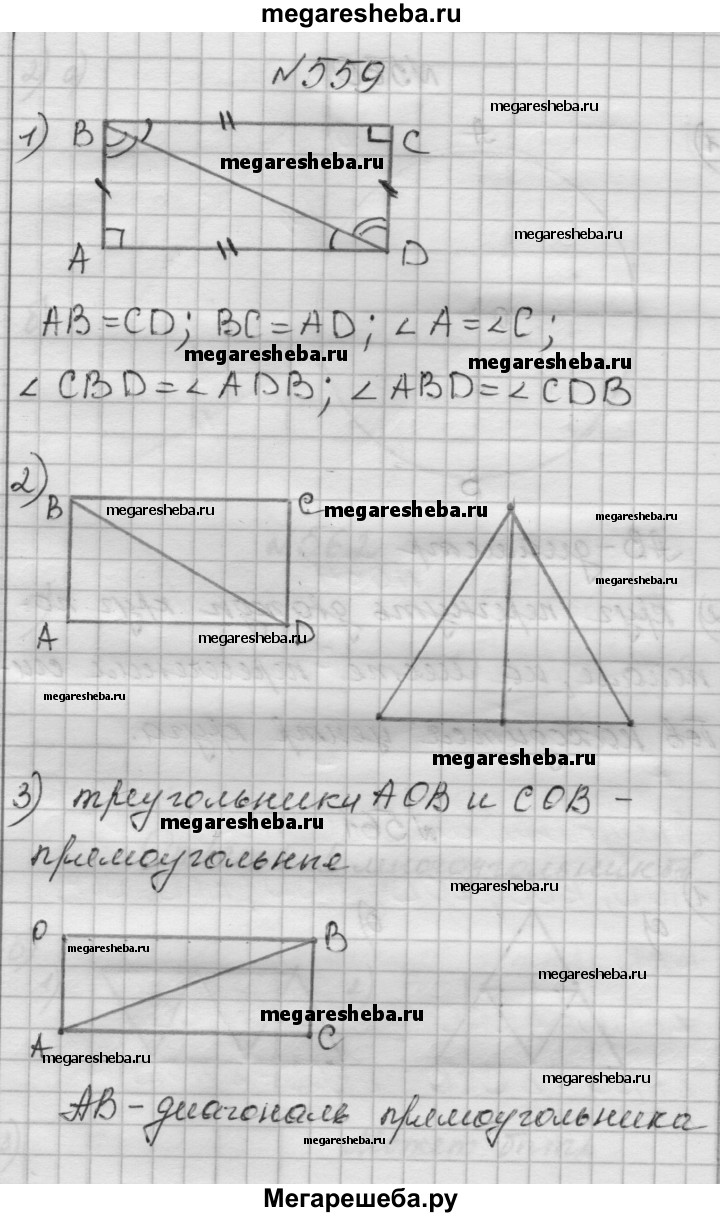 megaresheba.ru
№559
megaresheba.ru
1) B C
megaresheba.ru
megaresheba.ru
megaresheba.ru
A D
AB=CD; BC=AD; ∠A=∠C;
megaresheba.ru
megaresheba.ru
∠CBD=∠ADB; ∠ABD=∠CDB
2)
B C
megaresheba.ru
megaresheba.ru
megaresheba.ru
megaresheba.ru
A D
megaresheba.ru
megaresheba.ru
megaresheba.ru
3) треугольники AOB и COB –
megaresheba.ru
прямоугольные
megaresheba.ru
O B
megaresheba.ru
megaresheba.ru
megaresheba.ru
A C
megaresheba.ru
megaresheba.ru
AB – диагональ прямоугольника
megaresheba.ru
Мегарешеба.ру